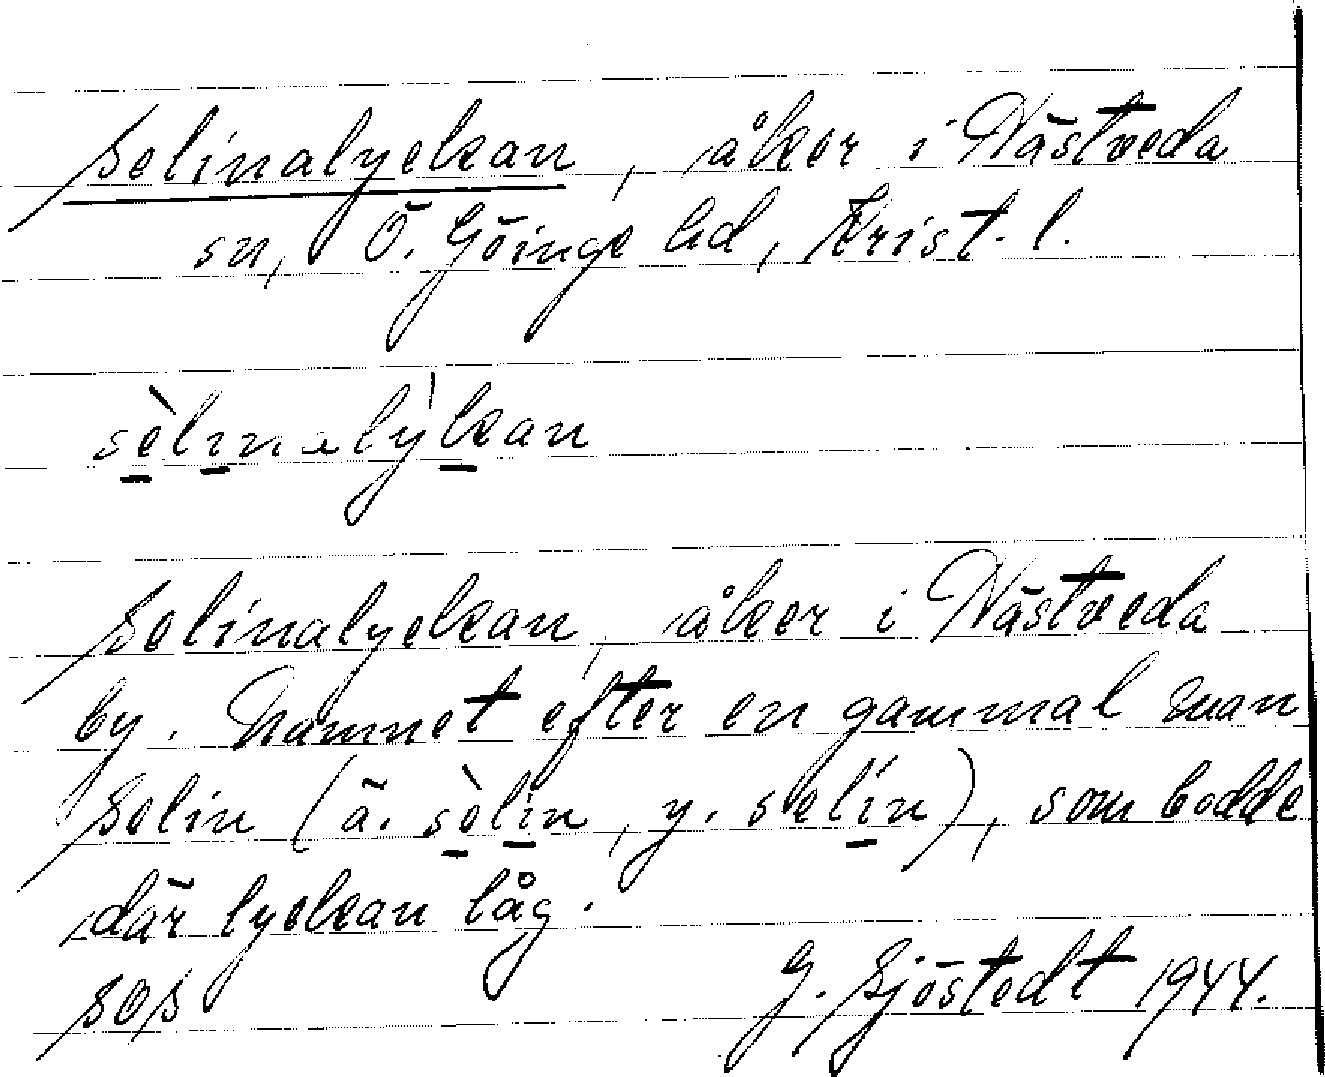 Selinalyckan, åker i Nästveda
sn, Ö. Göinge hd, Krist. l.
sèlinalýkan
Selinalyckan, åker i Nästveda
by. Namnet efter en gammal man
Selin (ä. sèlin, y. selín), som bodde
där lyckan låg.
SOS G. Sjöstedt 1944.